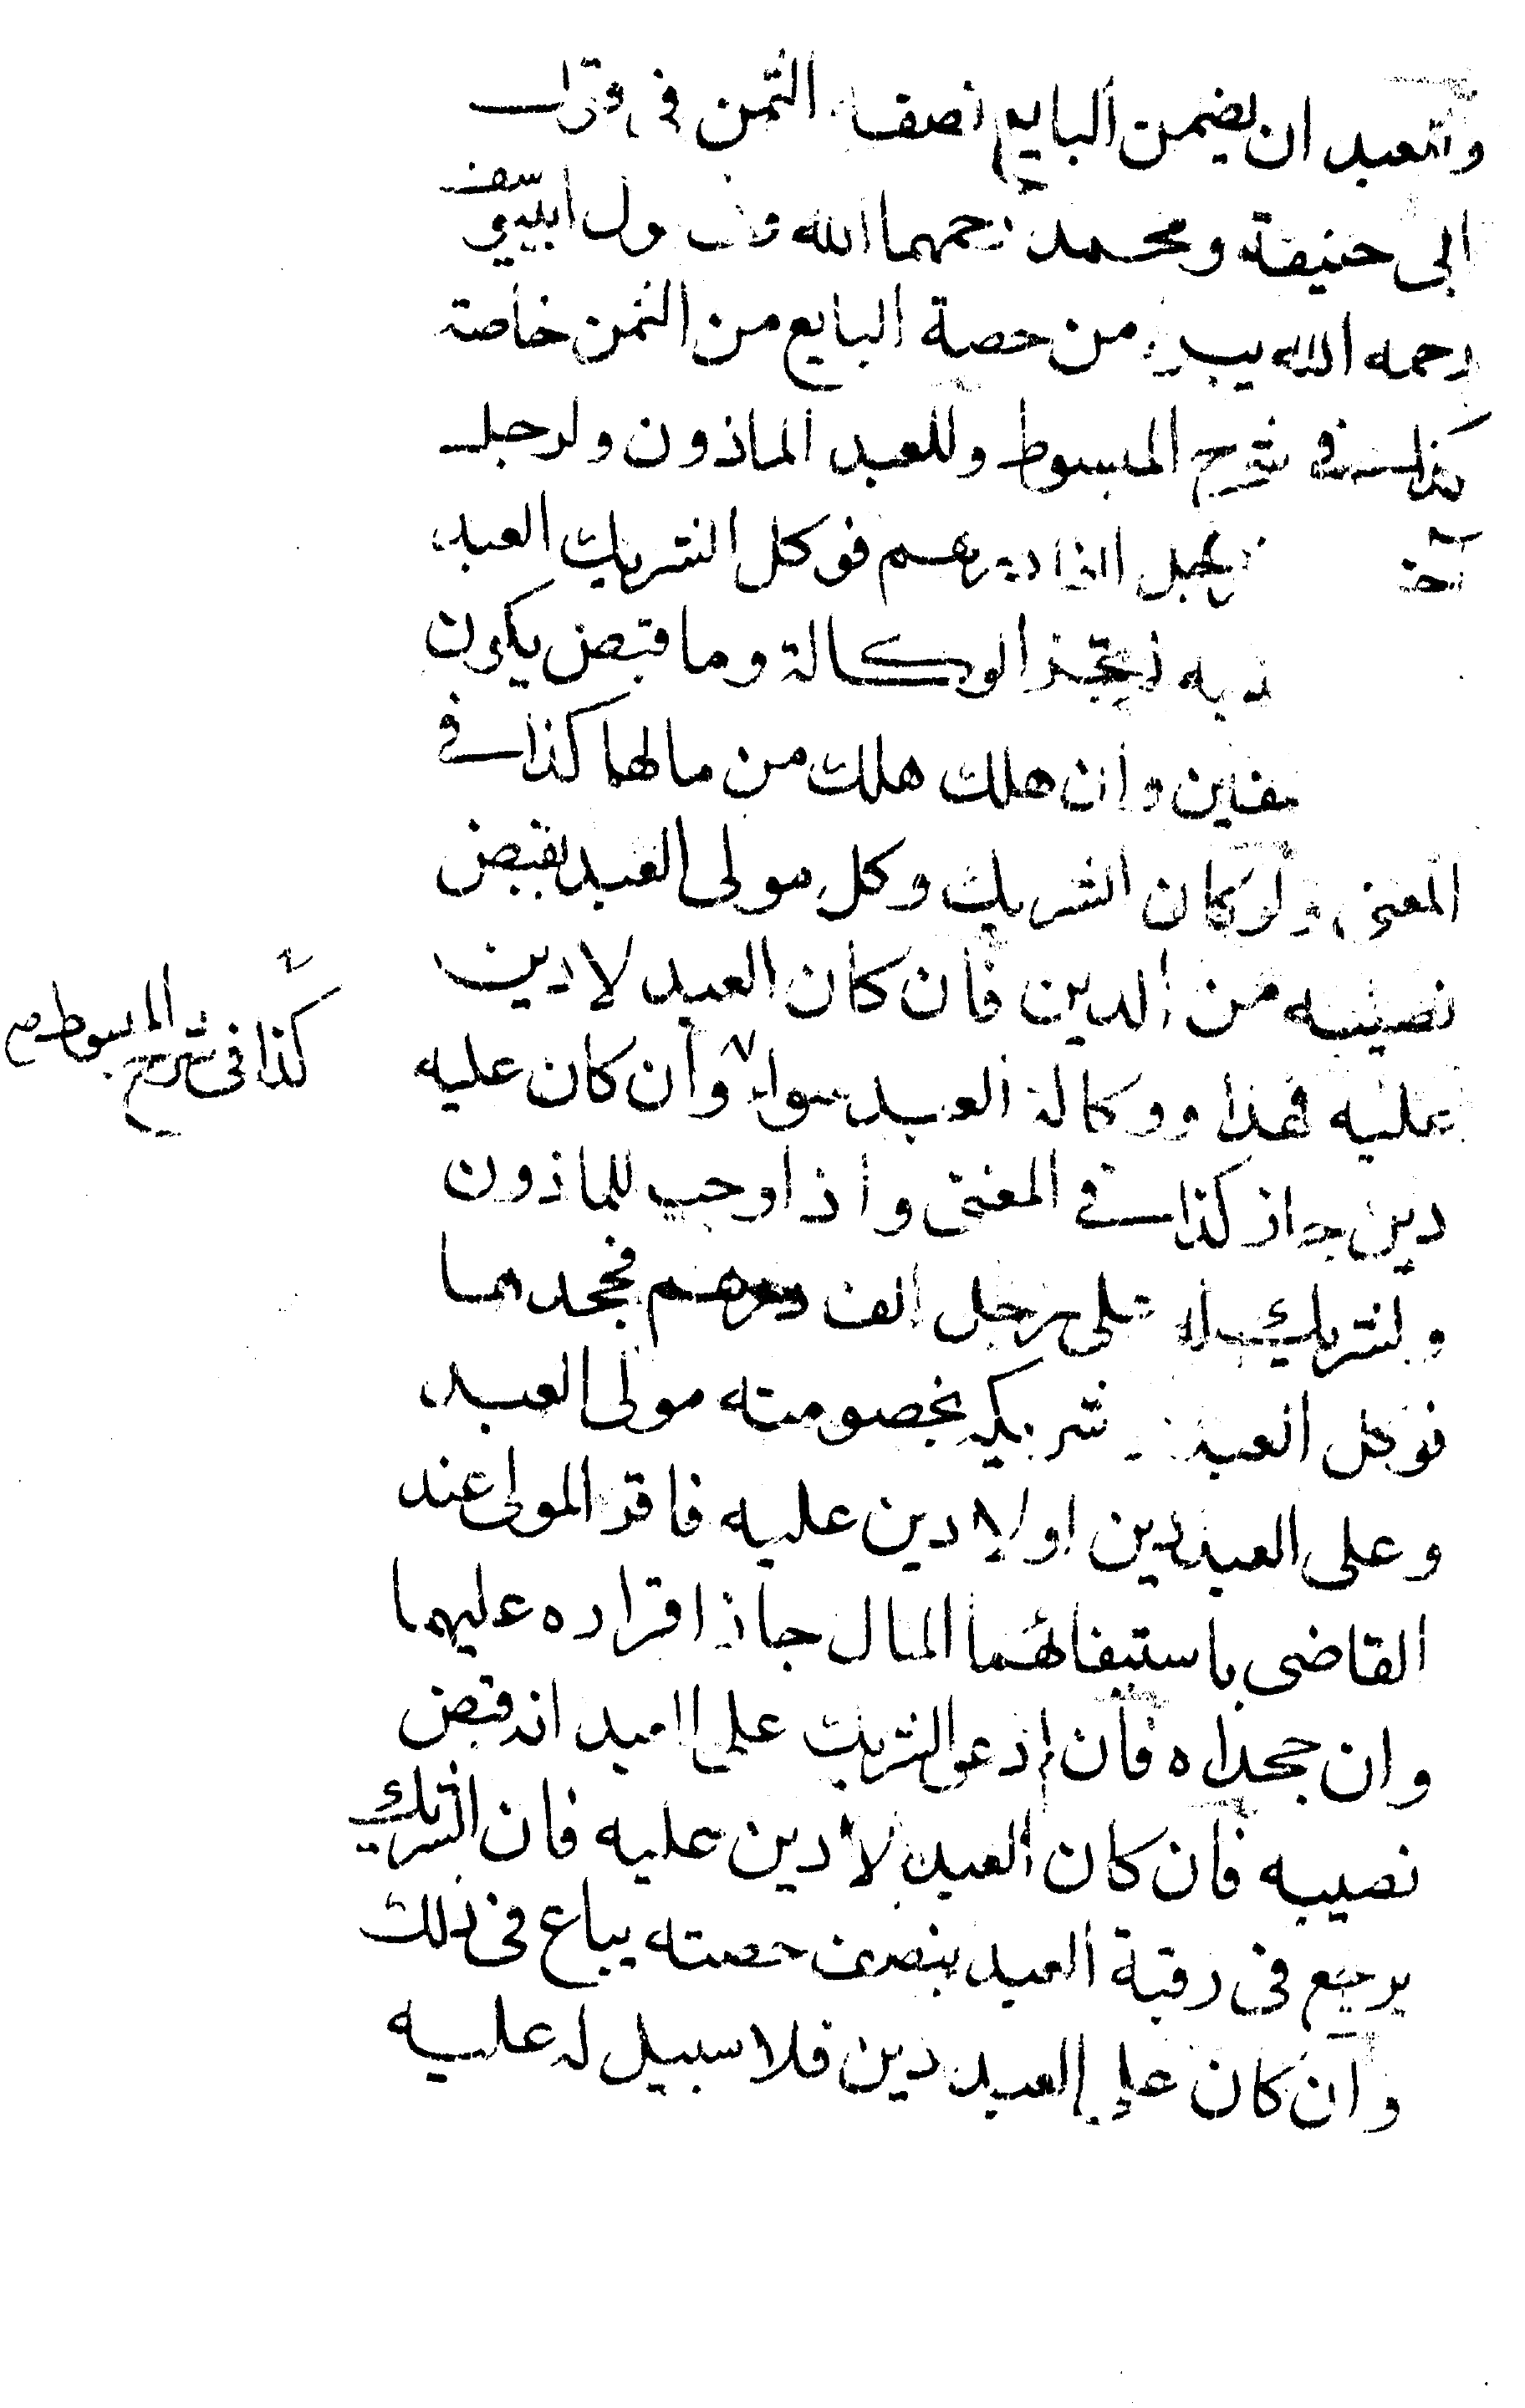 وللعبد ان يضمن البايع نصف الثمن فى قول
ابى حنيفة ومحمد رحمهما الله وفى قول ابييوسف
رحمه الله يبرء من حصة البايع من الثمن خاصة
كذا فى شرح المبسوط وللعبد الماذون ولرجل
آخر رجل الف درهم فوكل الشريك العبد
لم تجز الوكالة وما قبض يكون
نصفين وان هلك هلك من مالهما كذا فى
المغنى ولو كان الشريك وكل مولى العبد بقبض
نصيبه من الدين فان كان العبد لا دين
عليه فهذا ووكالة العبد سواء وان كان عليه
كذا فى شرح المبسوط صح
دين جاز كذا فى المغنى واذا وجب للماذون
ولشريك له على رجل الف درهم فجحدهما
فوكل العبد شريكه بخصومته مولى العبد
وعلى العبد دين او لا دين عليه فاقر المولى عند
القاضى باستيفائهما المال جاز اقراره عليهما
وان جحداه فان ادعى الشريك على العبد انه قبض
نصيبه فان كان العبد لا دين عليه فان الشريك
يرجع فى رقبة العبد بنصف حصته يباع فى ذلك
وان كان على العبد دين فلا سبيل له عليه